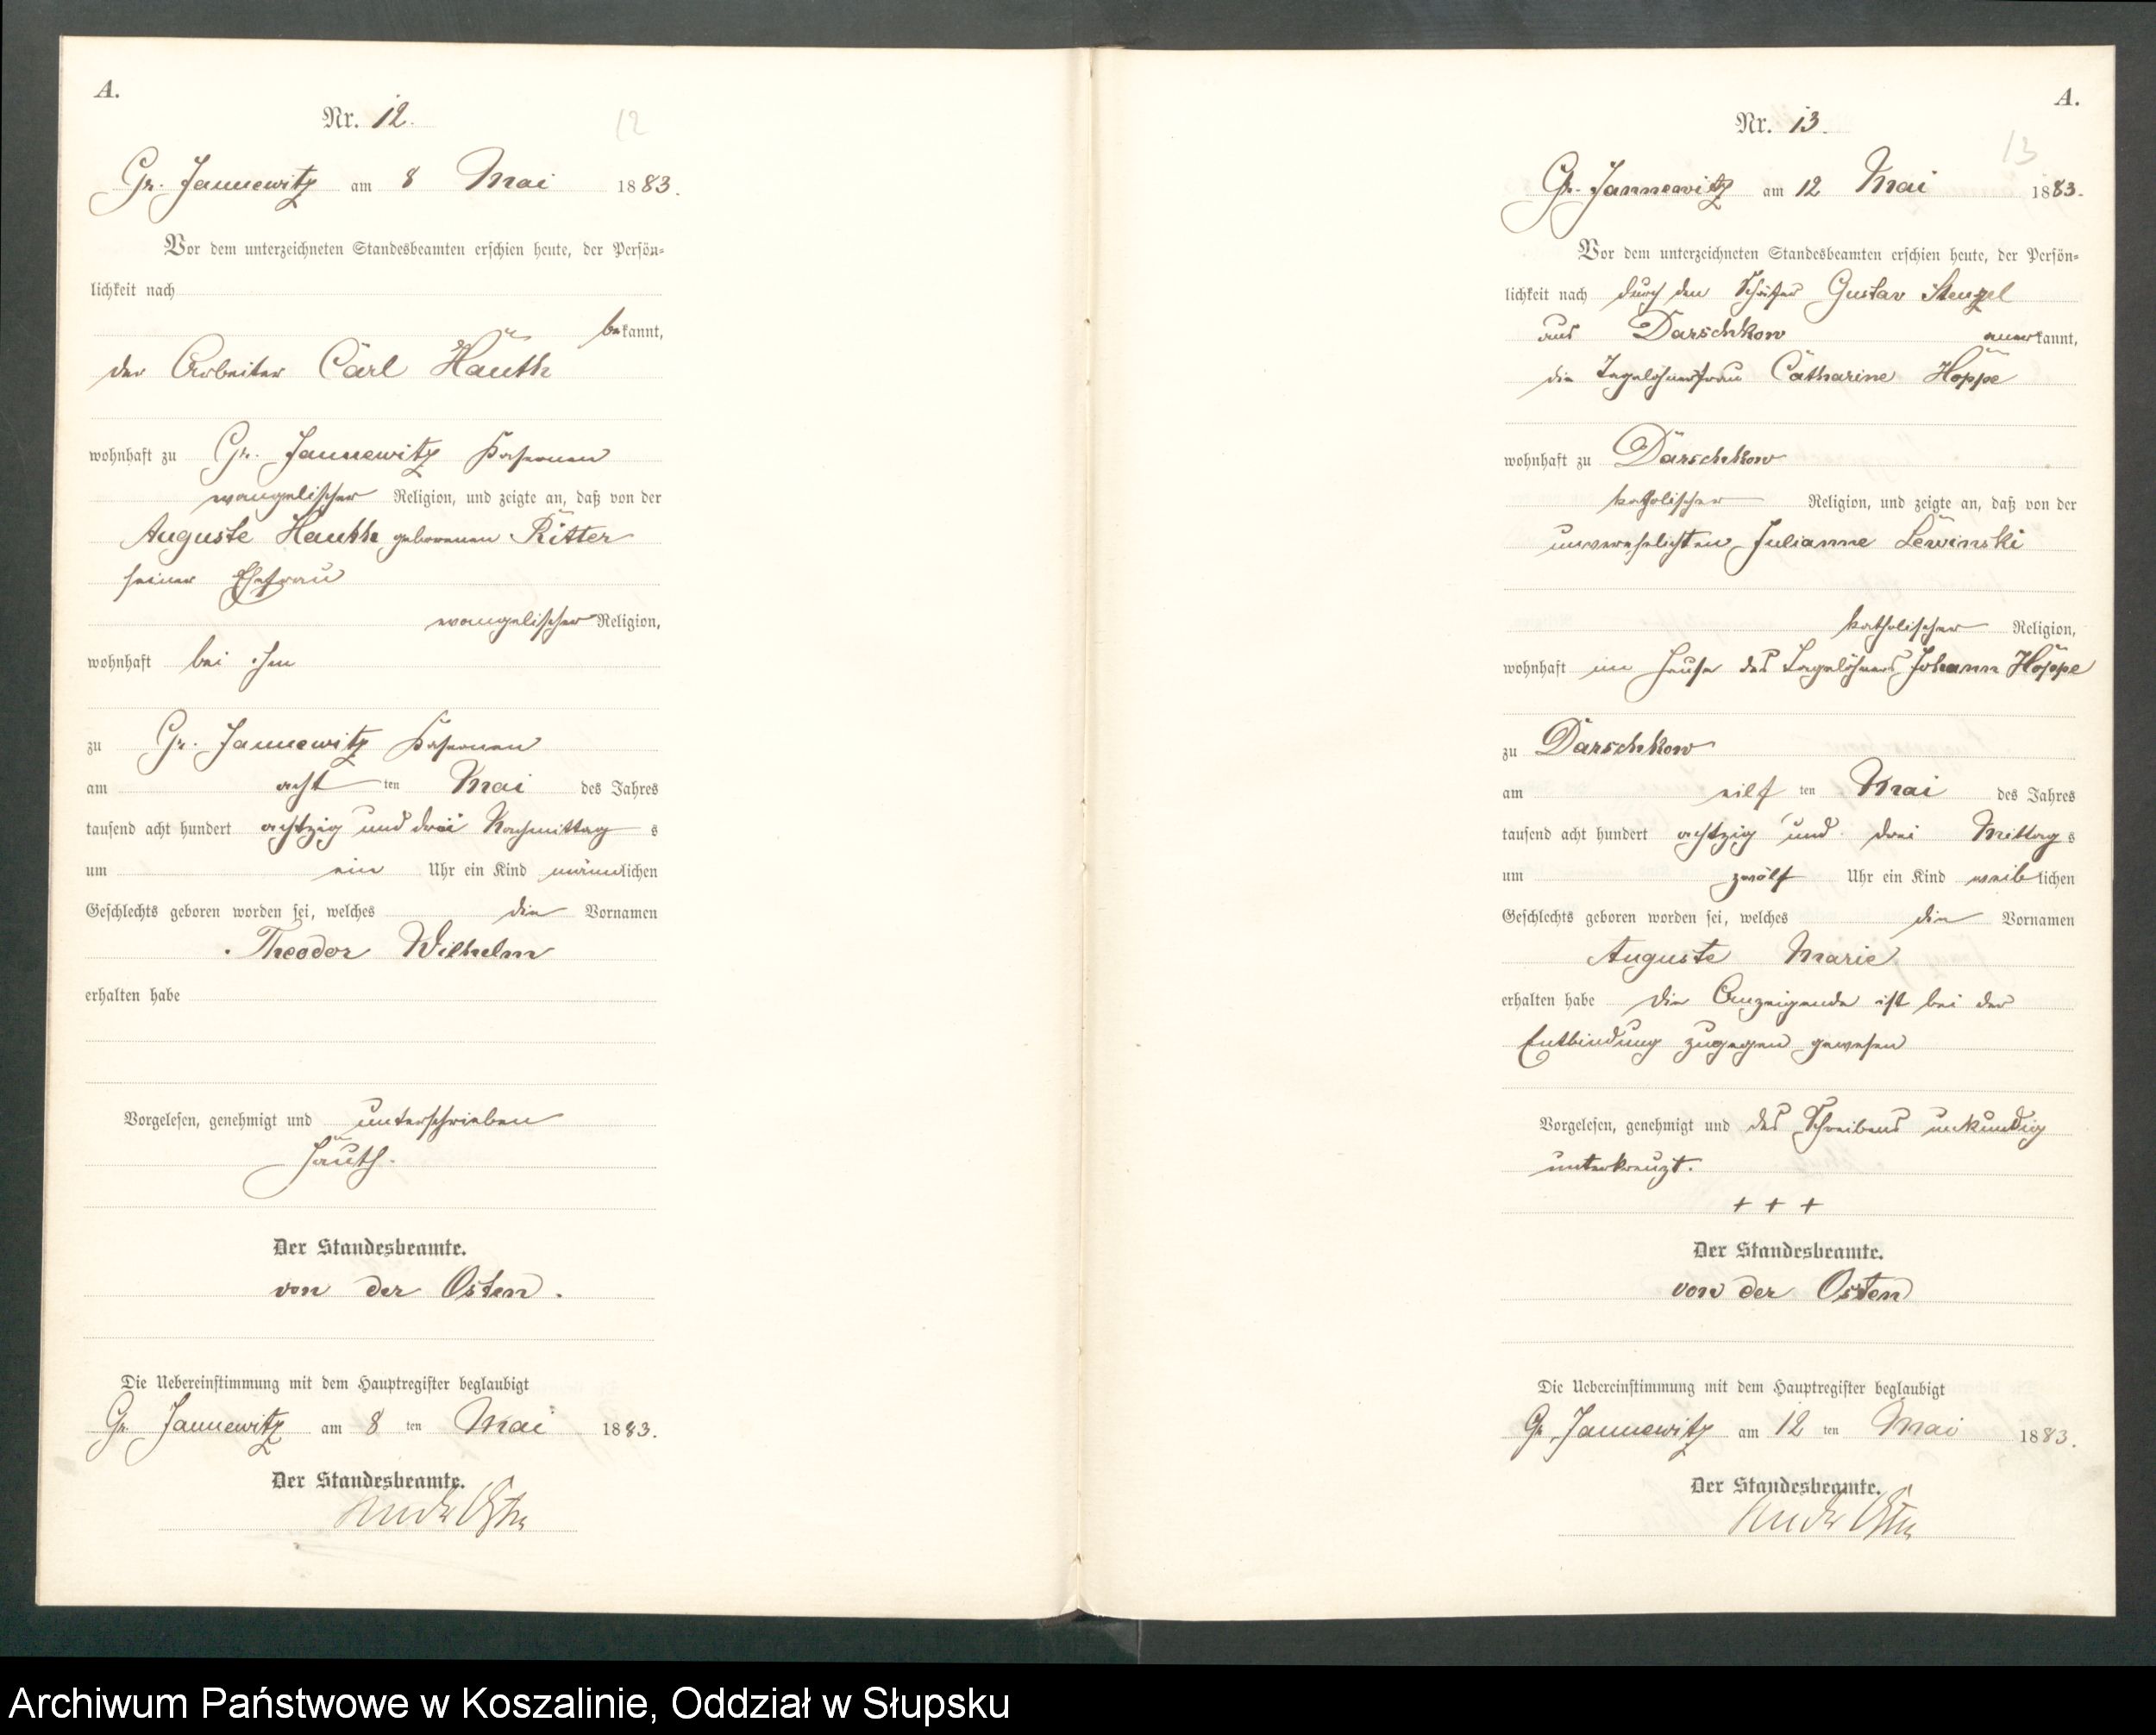 A.
Nr. 12.
12
Gr. Jannewitz am 8 Mai 1883.
Vor dem unterzeichneten Standesbeamten erschien heute, der Persön-
lichkeit nach
bekannt,
der Arbeiter Carl Häuth
wohnhaft zu Gr. Jannewitz
evangelischer Religion, und zeigte an, daß von der
Auguste Hauth geborenen Ritter
seiner Ehefrau
evangelischer Religion,
wohnhaft bei ihm
zu Gr. Jannewitz
am acht ten Mai des Jahres
tausend acht hundert achtzig und drei Nachmittag s
um ein Uhr ein Kind männlichen
Geschlechts geboren worden sei, welches die Vornamen
Theodor Wilhelm
erhalten habe
Vorgelesen, genehmigt und unterschrieben
Häuth.
Der Standesbeamte.
von der Osten.
Die Uebereinstimmung mit dem Hauptregister beglaubigt
Gr. Jannewitz am 8 ten Mai 1883.
Der Standesbeamte.
von der Osten
A.
Nr. 13.
13
Gr. Jannewitz am 12 Mai 1883.
Vor dem unterzeichneten Standesbeamten erschien heute, der Persön-
lichkeit nach durch den Schäfer Gustav Stenzel
aus Darschkow anerkannt,
die Tagelöhnerfrau Catharine Hoppe
wohnhaft zu Darschkow
katholischer Religion, und zeigte an, daß von der
unverehelichten Julianne Lewinski
katholischer Religion,
wohnhaft im Hause des Tagelöhners Johann Hoppe
zu Darschkow
am eilf ten Mai des Jahres
tausend acht hundert achtzig und drei Mittag s
um zwölf Uhr ein Kind weiblichen
Geschlechts geboren worden sei, welches die Vornamen
Auguste Marie
erhalten habe Die Anzeigende ist bei der
Entbindung zugegen gewesen
Vorgelesen, genehmigt und des Schreibens unkundig
unterkreuzt.
+ + +
Der Standesbeamte.
von der Osten
Die Uebereinstimmung mit dem Hauptregister beglaubigt
Gr. Jannewitz am 12 ten Mai 1883.
Der Standesbeamte.
von der Osten
Archiwum Państwowe w Koszalinie, Oddział w Słupsku